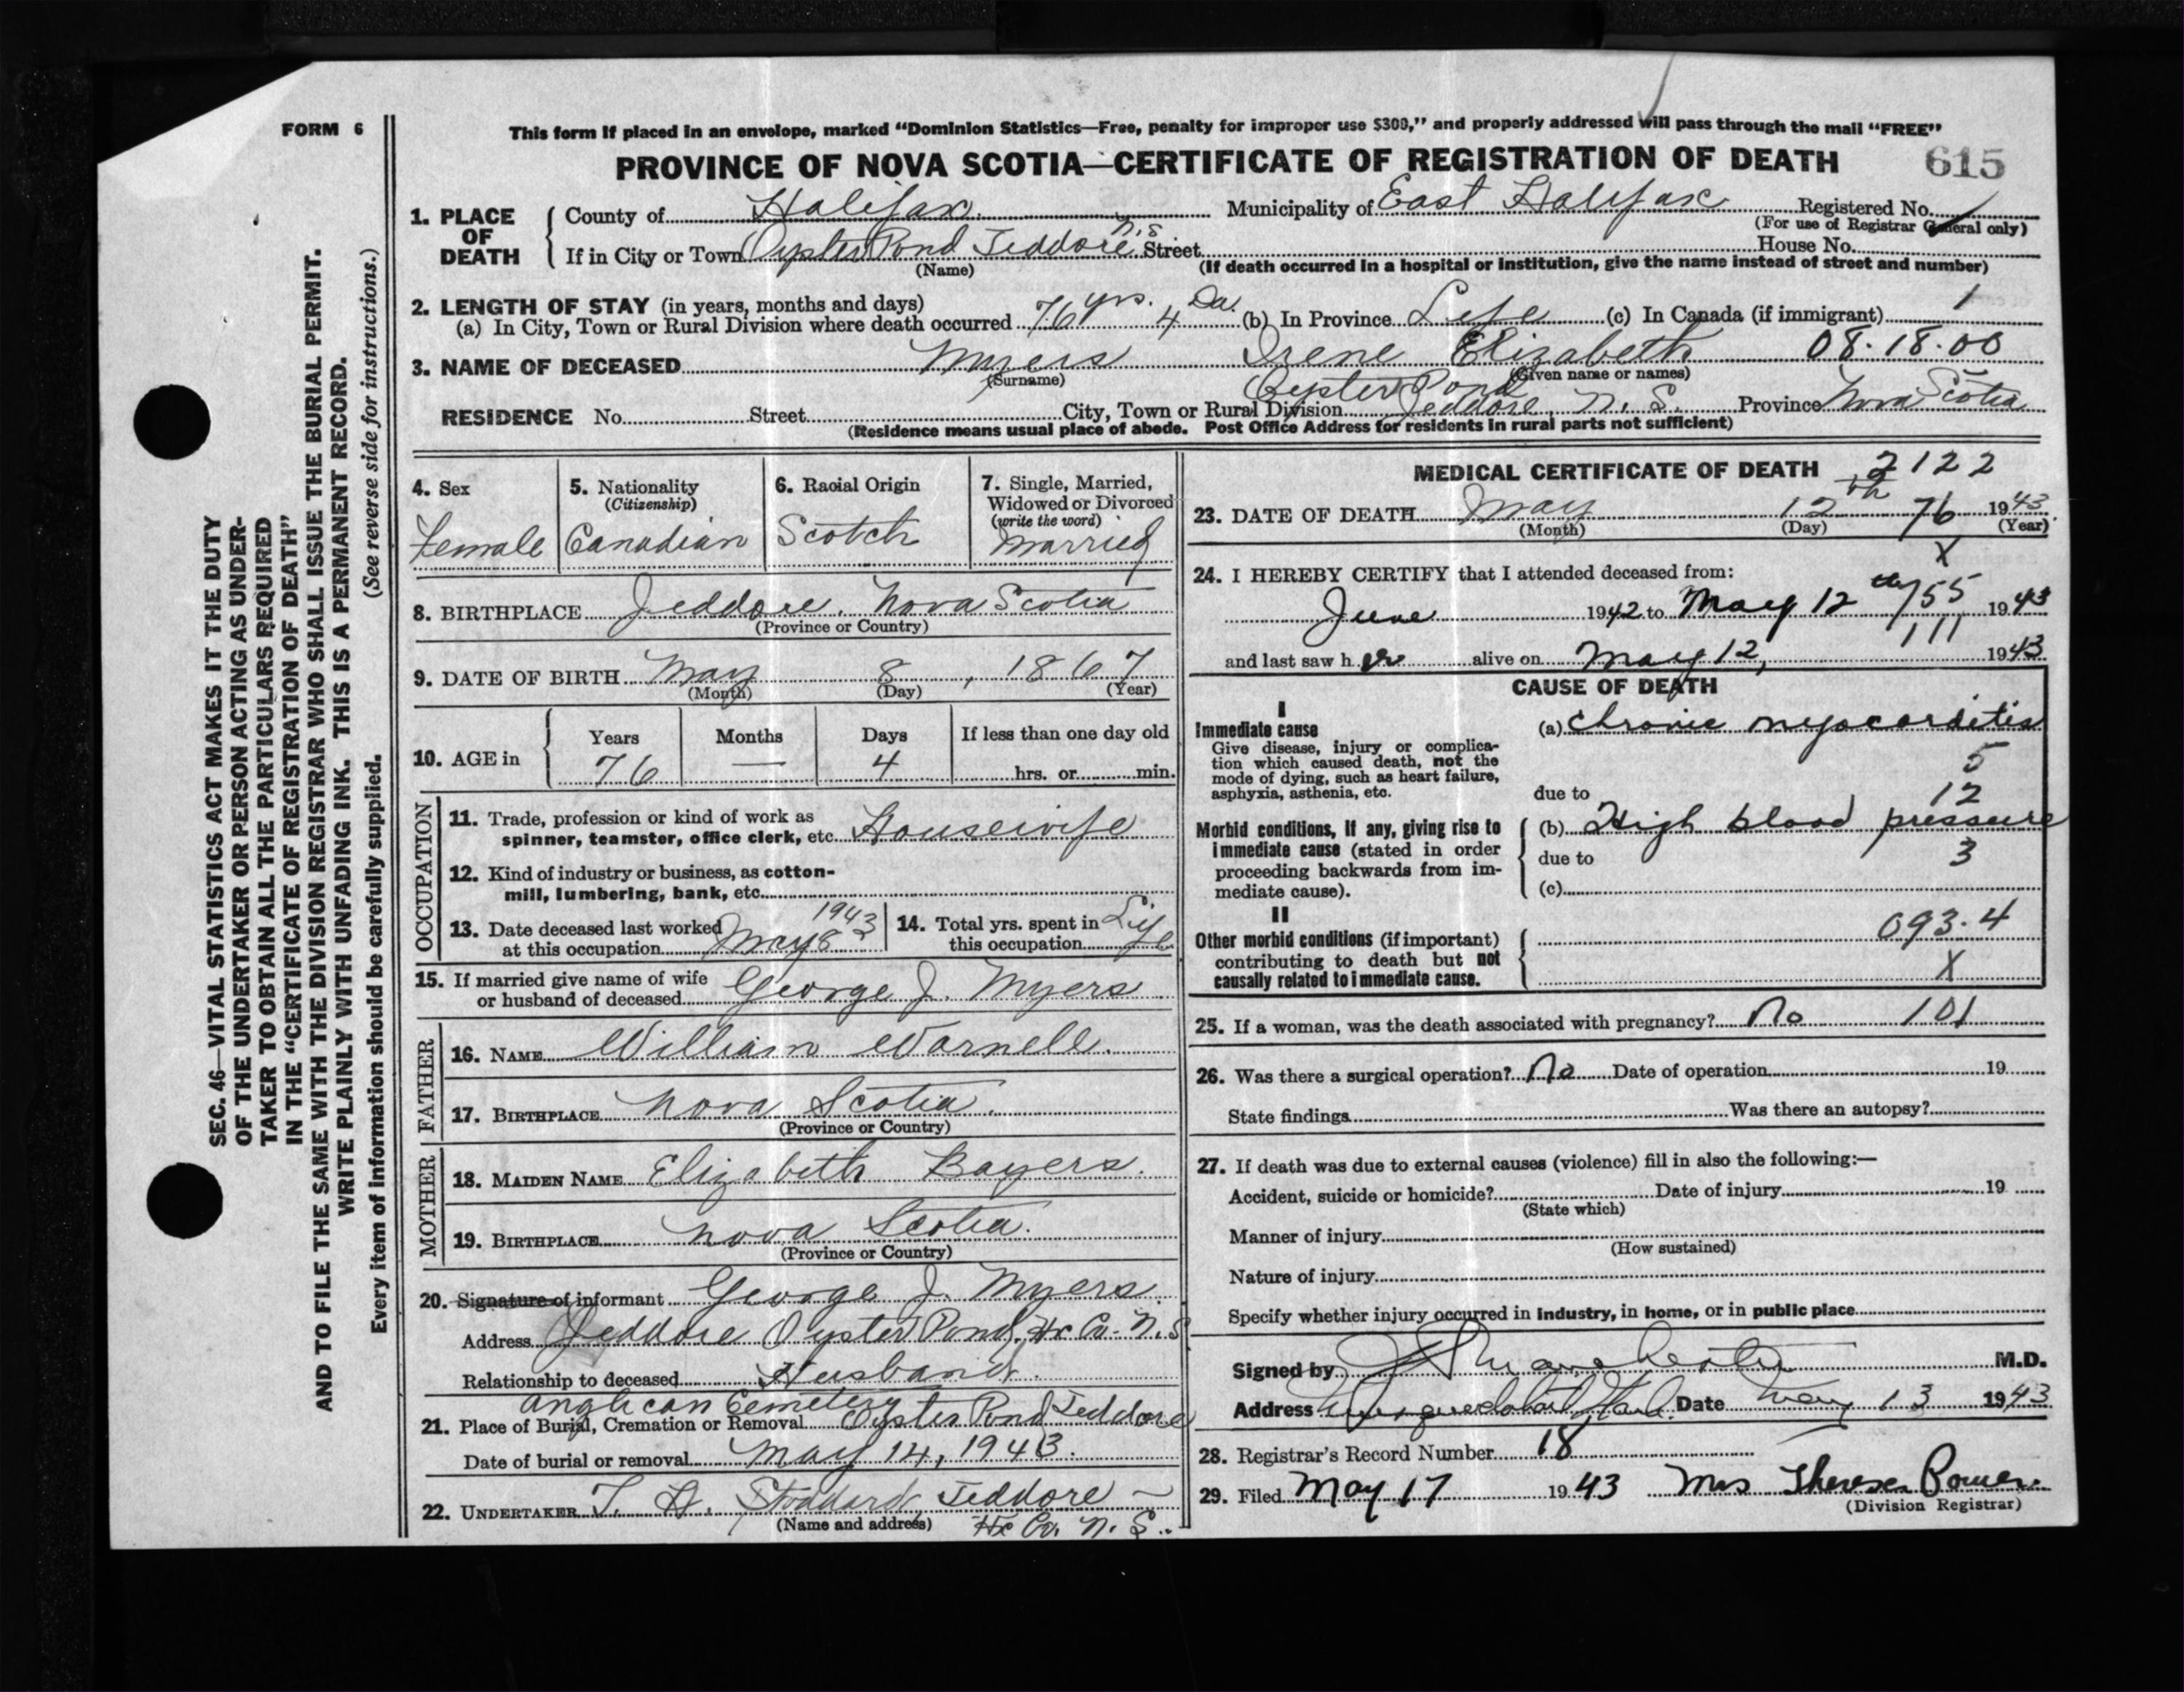 FORM 6
This form if placed in an envelope, marked "Dominion Statistics—Free, penalty for improper use $300," and properly addressed will pass through the mail "FREE"
PROVINCE OF NOVA SCOTIA—CERTIFICATE OF REGISTRATION OF DEATH 615
1. PLACE OF DEATH County of Halifax Municipality of East Halifax Registered No.
(For use of Registrar General only)
If in City or Town Oyster Pond Jeddore N.S Street House No.
(Name) (If death occurred in a hospital or institution, give the name instead of street and number)
2. LENGTH OF STAY (in years, months and days)
(a) In City, Town or Rural Division where death occurred 76 yrs. 4 Da. (b) In Province Life (c) In Canada (if immigrant) 1
3. NAME OF DECEASED Myers Irene Elizabeth 08.18.00
(Surname) (Given name or names)
RESIDENCE No. Street City, Town or Rural Division Oyster Pond Jeddore N. S. Province Nova Scotia
(Residence means usual place of abode. Post Office Address for residents in rural parts not sufficient)
4. Sex
Female
5. Nationality
(Citizenship)
Canadian
6. Racial Origin
Scotch
7. Single, Married, Widowed or Divorced
(write the word)
Married
8. BIRTHPLACE Jeddore. Nova Scotia
(Province or Country)
9. DATE OF BIRTH May 8, 1867
(Month) (Day) (Year)
10. AGE in Years Months Days If less than one day old
76 — 4 hrs. or min.
OCCUPATION
11. Trade, profession or kind of work as
spinner, teamster, office clerk, etc. Housewife
12. Kind of industry or business, as cotton-
mill, lumbering, bank, etc.
13. Date deceased last worked
at this occupation May 8 1943
14. Total yrs. spent in
this occupation Life
15. If married give name of wife
or husband of deceased George J. Myers
FATHER
16. NAME William Warnell.
17. BIRTHPLACE Nova Scotia.
(Province or Country)
MOTHER
18. MAIDEN NAME Elizabeth Bayers.
19. BIRTHPLACE Nova Scotia.
(Province or Country)
20. Signature of informant George J. Myers.
Address Jeddore Oyster Pond, Hx Co. N.S
Relationship to deceased Husband.
Anglican Cemetery
21. Place of Burial, Cremation or Removal Oyster Pond Jeddore
Date of burial or removal May 14, 1943.
22. UNDERTAKER T. A. Stoddard Jeddore —
(Name and address) Hx Co. N. S.
MEDICAL CERTIFICATE OF DEATH 2122
23. DATE OF DEATH May 12th 76 1943
(Month) (Day) (Year)
X
24. I HEREBY CERTIFY that I attended deceased from:
June 1942 to May 12th 1943
155
111
and last saw her alive on May 12, 1943
CAUSE OF DEATH
I
Immediate cause
Give disease, injury or complica-
tion which caused death, not the
mode of dying, such as heart failure,
asphyxia, asthenia, etc.
(a) Chronic myocarditis
5
due to 12
Morbid conditions, if any, giving rise to
immediate cause (stated in order
proceeding backwards from im-
mediate cause).
(b) High blood pressure
due to 3
(c)
II
Other morbid conditions (if important)
contributing to death but not
causally related to immediate cause.
093.4
X
25. If a woman, was the death associated with pregnancy? No 101
26. Was there a surgical operation? No Date of operation 19
State findings Was there an autopsy?
27. If death was due to external causes (violence) fill in also the following:—
Accident, suicide or homicide? Date of injury 19
(State which)
Manner of injury
(How sustained)
Nature of injury
Specify whether injury occurred in industry, in home, or in public place
Signed by M.D.
Address Date May 13 1943
28. Registrar's Record Number 18
29. Filed May 17 1943 Mrs Theresa Power
(Division Registrar)
SEC. 46—VITAL STATISTICS ACT MAKES IT THE DUTY
OF THE UNDERTAKER OR PERSON ACTING AS UNDER-
TAKER TO OBTAIN ALL THE PARTICULARS REQUIRED
IN THE "CERTIFICATE OF REGISTRATION OF DEATH"
AND TO FILE THE SAME WITH THE DIVISION REGISTRAR WHO SHALL ISSUE THE BURIAL PERMIT.
WRITE PLAINLY WITH UNFADING INK. THIS IS A PERMANENT RECORD.
Every item of information should be carefully supplied. (See reverse side for instructions.)